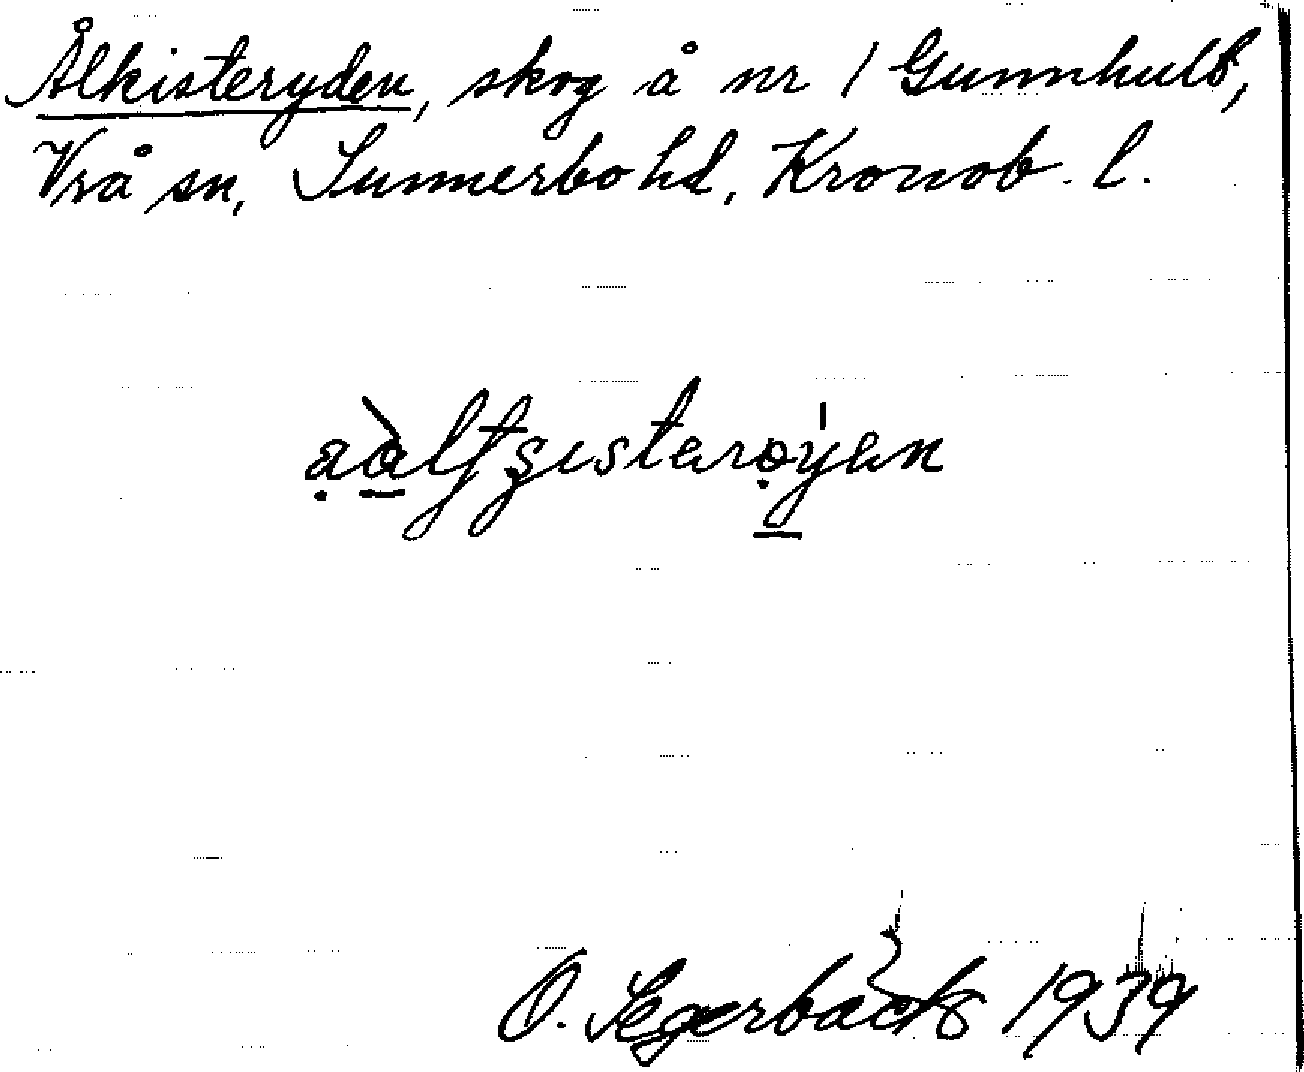 Ålkisteryden, skog å nr 1 Gunnhult,
Vrå sn, Sunnerbo hd, Kronob. l.
O. Segerbäck 1939